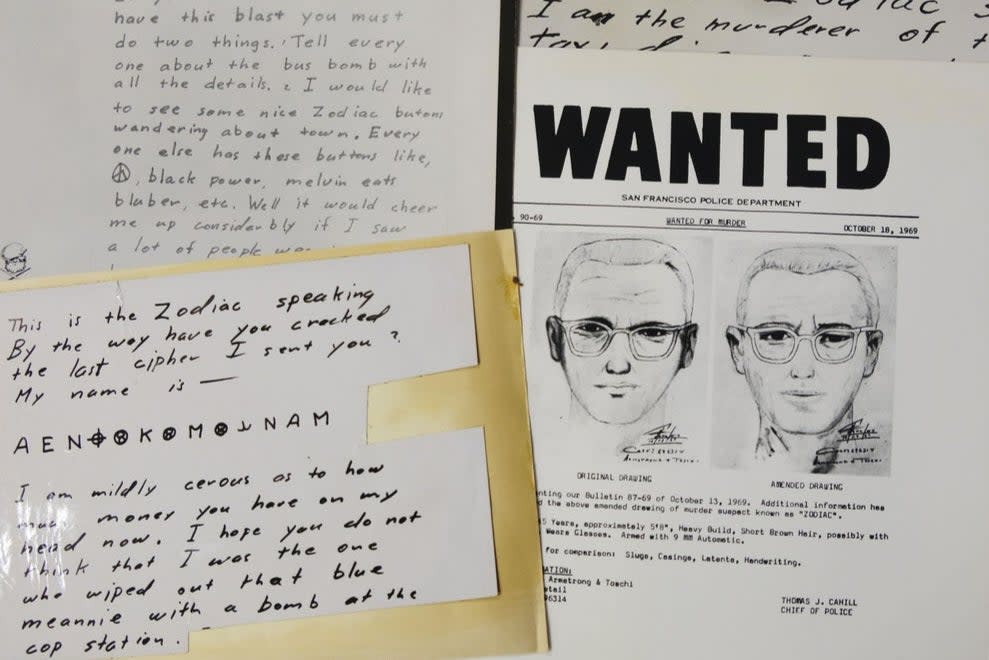 have this blast you must
do two things. 1 Tell every
one about the bus bomb with
all the details. 2 I would like
to see some nice Zodiac butons
wandering about town. Every
one else has these buttons like,
☮, black power, melvin eats
bluber, etc. Well it would cheer
me up considerbly if I saw
a lot of people
This is the Zodiac speaking
By the way have you cracked
the last cipher I sent you?
My name is —
A E N ⌖ ⊗ K ⊗ M ⊗ ⅃ N A M
I am mildly cerous as to how
much money you have on my
head now. I hope you do not
think that I was the one
who wiped out that blue
meannie with a bomb at the
cop station.
I am the murderer of
WANTED
SAN FRANCISCO POLICE DEPARTMENT
90-69 WANTED FOR MURDER OCTOBER 18, 1969
ORIGINAL DRAWING AMENDED DRAWING
our Bulletin 87-69 of October 13, 1969. Additional information has
the above amended drawing of murder suspect known as "ZODIAC".
Years, approximately 5'8", Heavy Build, Short Brown Hair, possibly with
Wears Glasses. Armed with 9 MM Automatic.
for comparison: Slugs, Casings, Latents, Handwriting.
Armstrong & Toschi
THOMAS J. CAHILL
CHIEF OF POLICE